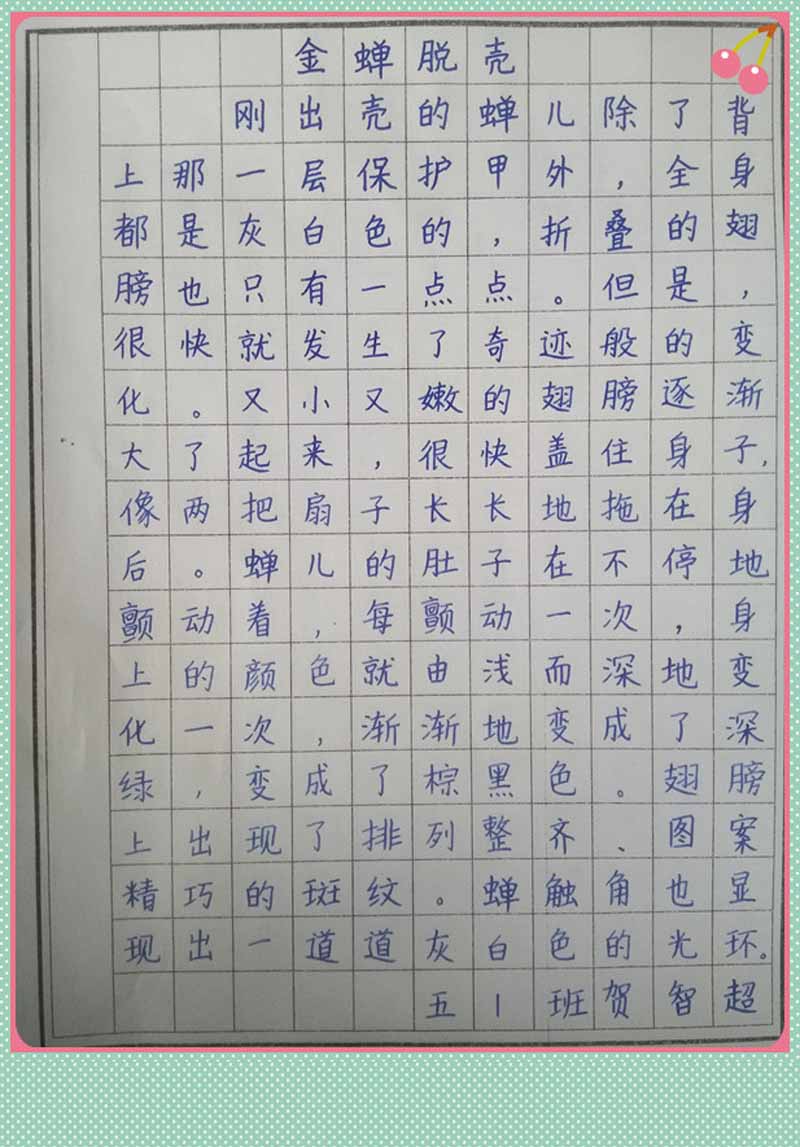 金蝉脱壳
刚出壳的蝉儿除了背
上那一层保护甲外，全身
都是灰白色的，折叠的翅
膀也只有一点点。但是，
很快就发生了奇迹般的变
化。又小又嫩的翅膀逐渐
大了起来，很快盖住身子，
像两把扇子长长地拖在身
后。蝉儿的肚子在不停地
颤动着，每颤动一次，身
上的颜色就由浅而深地变
化一次，渐渐地变成了深
绿，变成了棕黑色。翅膀
上出现了排列整齐、图案
精巧的斑纹。蝉触角也显
现出一道道灰白色的光环。
五1班贺智超